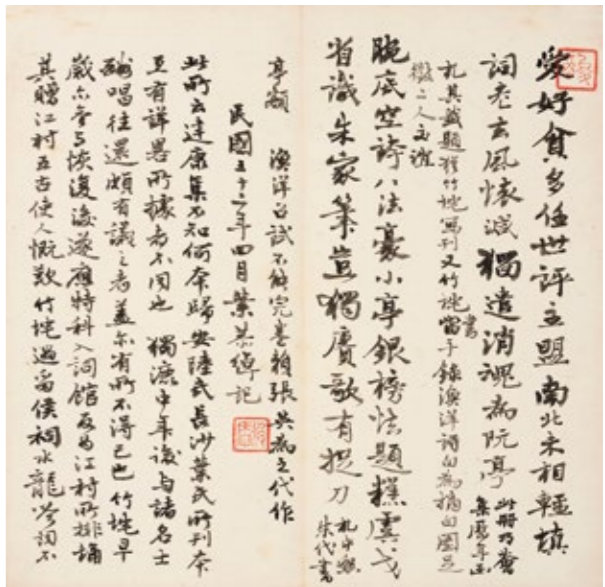 愛好貪多任世評主盟南北未相輕填
詞老去風懷減獨遣消魂為阮亭 此冊乃
札其籤題猶竹垞寫刊又竹垞手錄漁洋詞句為摘句圖足
徵二人交誼
腕底空誇八法豪小亭銀榜怯題糕虞戈
省識朱家筆豈獨賡歌有捉刀 札中 朱代書
亭額 漁洋召試不能完卷賴張 英為之代作
民國五十二年四月葉恭綽記
此所云達康集不知何本歸安陸氏長沙葉氏所刊本
互有詳畧所據者不同也 獨漉中年後与諸名士
酬唱往還頗有議之者蓋亦有所不得已也竹垞早
歲亦參与恢復後遂應特科入詞館反為江村所排
其贈江村五古使人慨歎竹垞過留侯祠水龍吟詞不